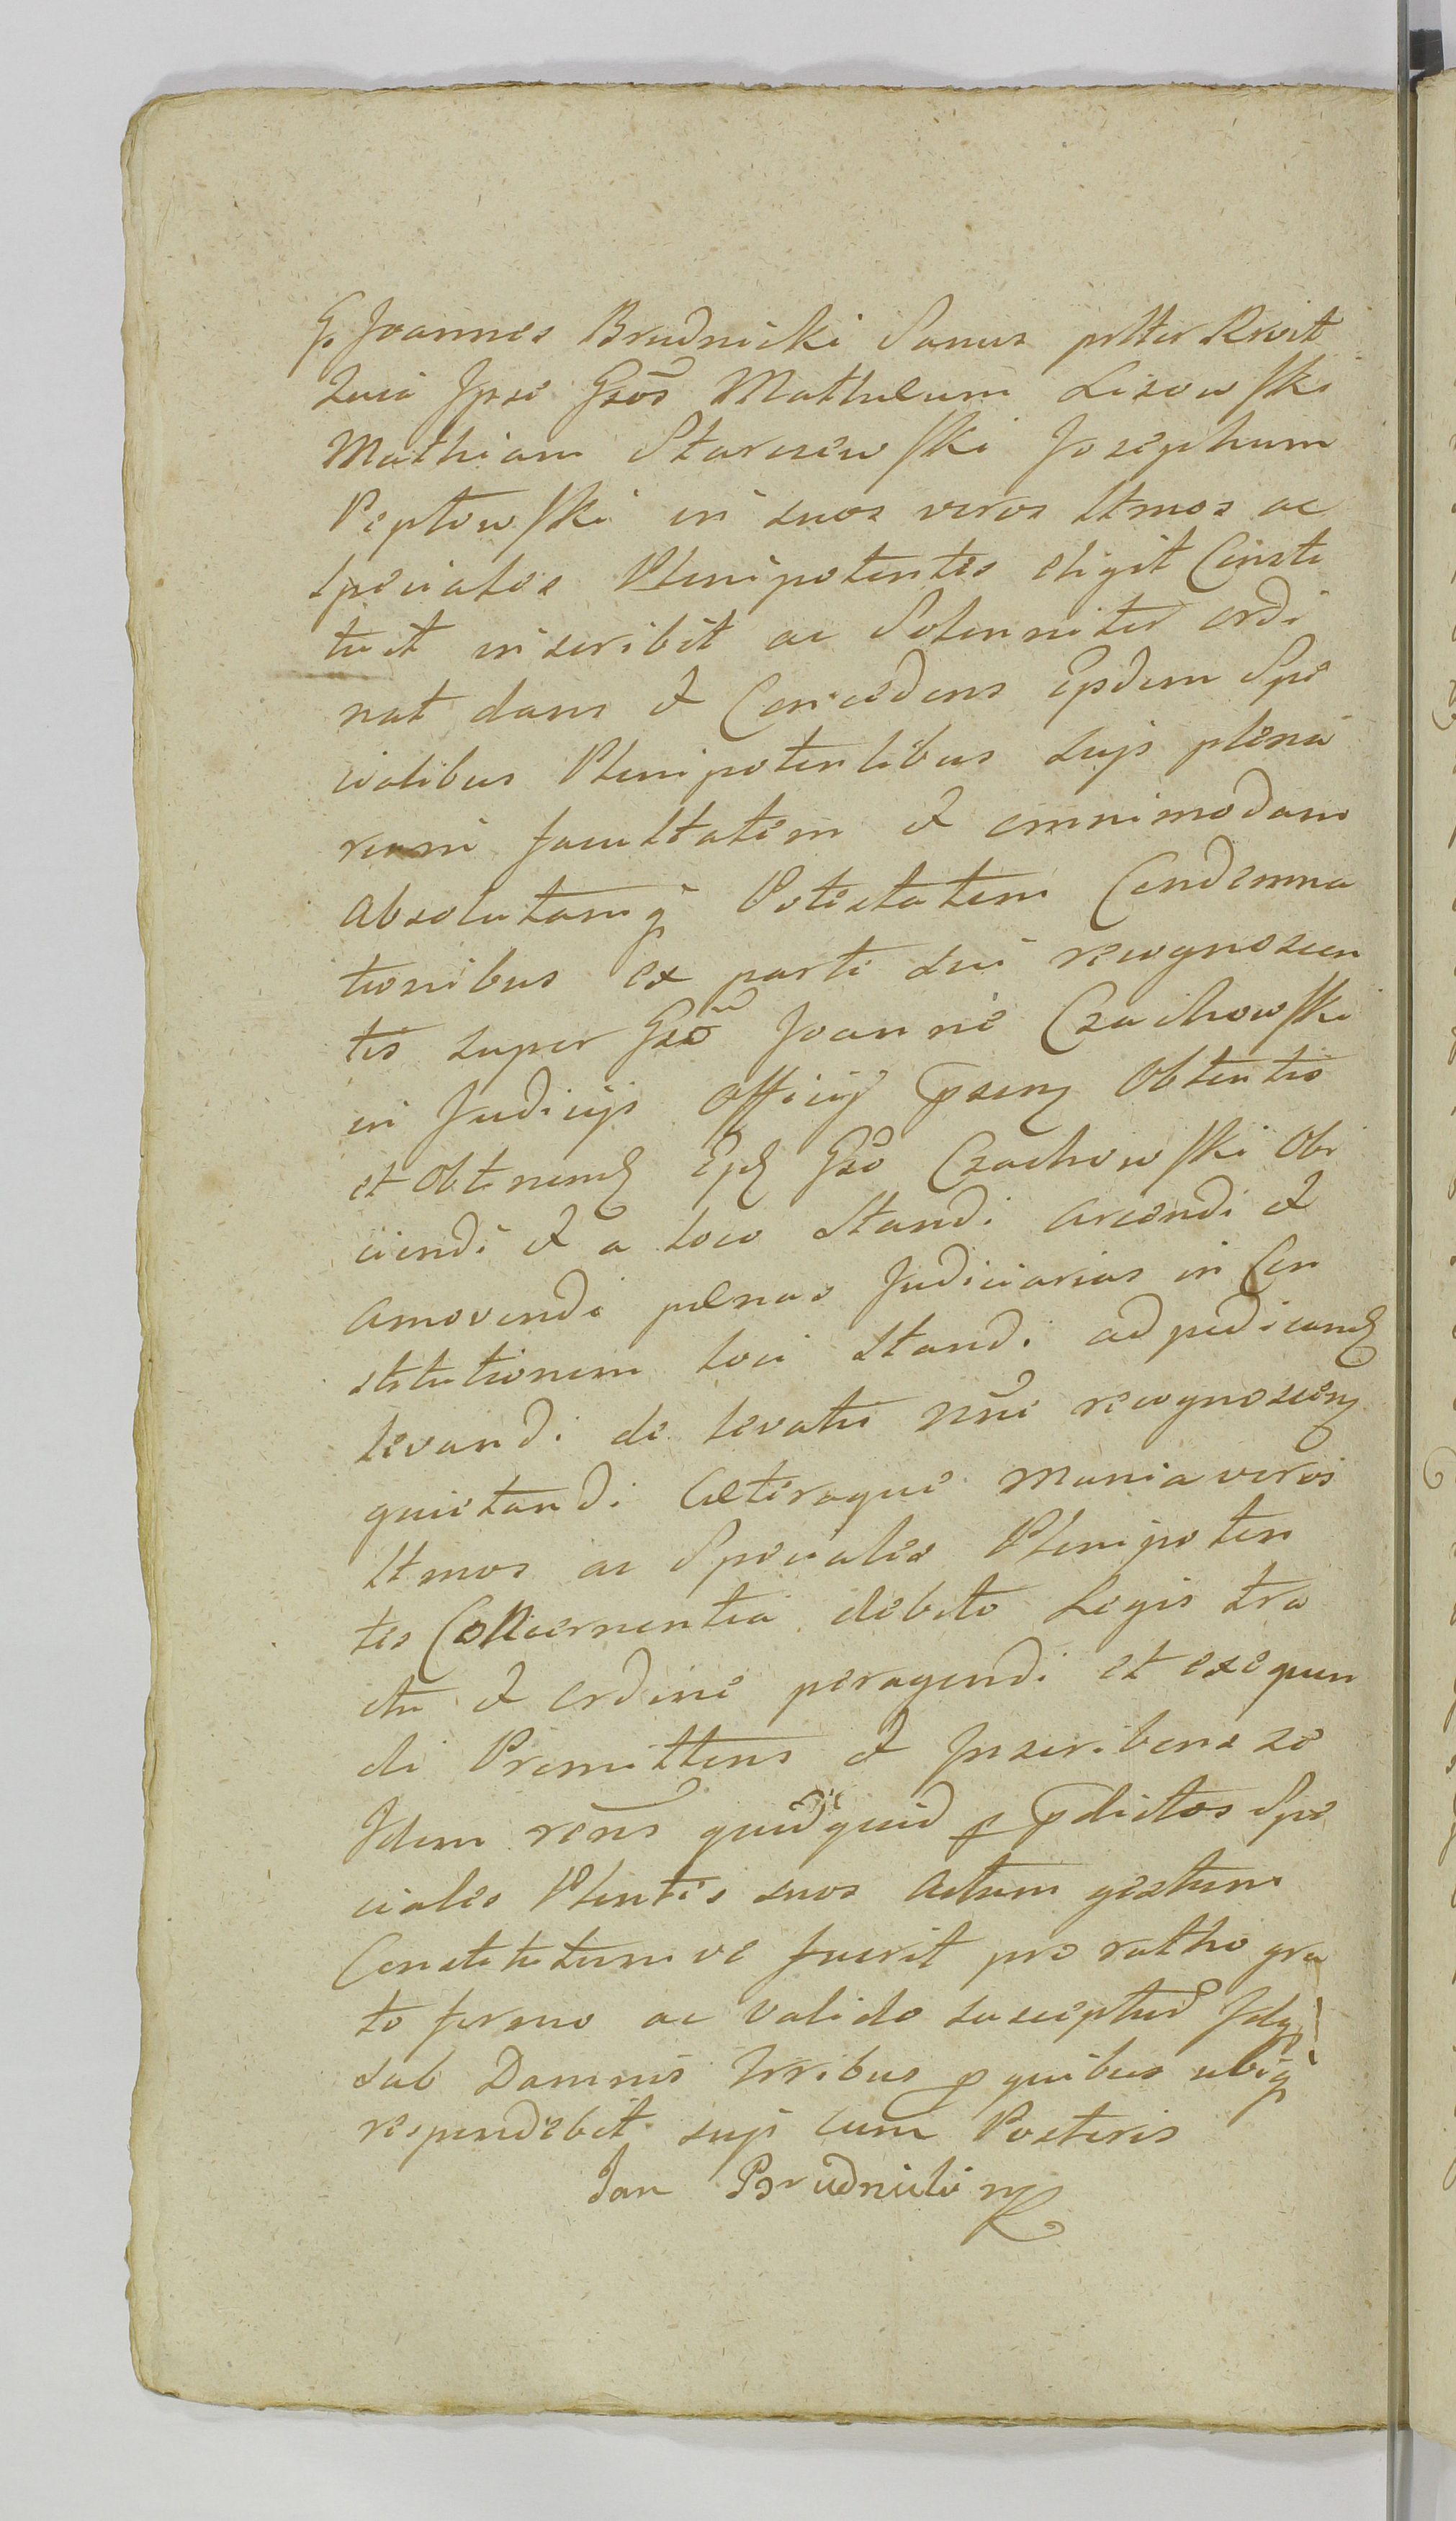 G. Joannes Brudnicki Sanus psttr Rwit
Quia Ipse Gsos Mathæum Lisowski
Mathiam Starczewski Josephum
Peptowski in suos veros lttmos ac
speciales Plenipotentes eligit Consti
tuit inscribit ac Solenniter ordi
nat dans et Concedens Eysdem Spe
cialibus Plenipotentibus suis plena
riam facultatem et omnimodam
absolutamq Potestatem Condemna
tionibus ex parte sui recognoscen
tis super Gso Joanne Czachowski
in Judicijs Officij psen Obtentis
et Obtinend Gso Czachowski Obi
ciendi et a loco Standi arcendi et
amovendi pænas Judiciarias in Con
stitutionem loci Standi adjudicand
levandi de levatis nne recognoscen
quietandi Cæteraque munia veros
lttmos ac Speciales Plenipoten
tes Concernentia debito Legis tra
ctu et ordine peragendi et exequen
di Promittens et Inscribens se
Idem rens quidquid p pdictos Spe
ciales Plentes suos actum gestum
Constitutumve fuerit pro ratho gra
to firmo ac valido suscepturu Idq
sub Damnis trribus p quibus ubiq
respondebit suis cum Posteris
Jan Brudnicki mp